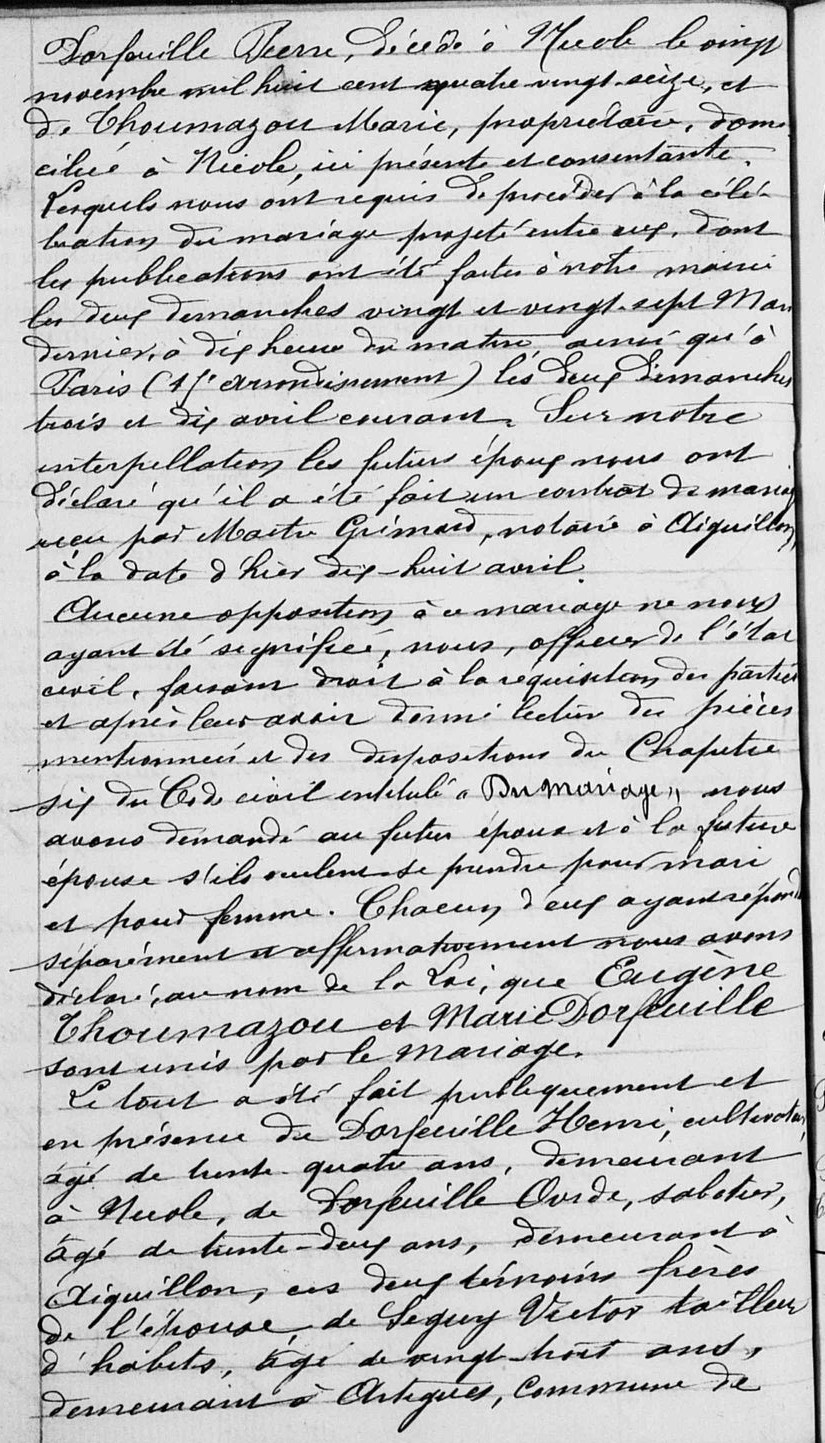 Dorfeuille Pierre, décédé à Nicole le vingt
novembre mil huit cent quatre-vingt-seize, et
de Thoumazou Marie, propriétaire, domi
ciliée à Nicole, ici présente et consentante.
Lesquels nous ont requis de procéder à la célé-
bration du mariage projeté entre eux, dont
les publications ont été faites à notre mairie
les deux dimanches vingt et vingt-sept Mars
dernier, à dix heures du matin ainsi qu'à
Paris ( arrondissement) les deux dimanches
trois et dix avril courant. Sur notre
interpellation les futurs époux nous ont
déclaré qu'il a été fait un contrat de mariage
reçu par Maître Grimard, notaire à Aiguillon,
à la date d'hier dix-huit avril.
Aucune opposition à ce mariage ne nous
ayant été signifiée, nous, officier de l'état
civil, faisant droit à la réquisition des parties
et après leur avoir donné lecture des pièces
mentionnées et des dispositions du Chapitre
six du Code civil intitulé « Du mariage », nous
avons demandé au futur époux et à la future
épouse s'ils veulent se prendre pour mari
et pour femme. Chacun d'eux ayant répondu
séparément et affirmativement nous avons
déclaré, au nom de la Loi, que Eugène
Thoumazou et Marie Dorfeuille
sont unis par le mariage.
Le tout a été fait publiquement et
en présence de Dorfeuille Henri, cultivateur,
âgé de trente-quatre ans, demeurant
à Nicole, de Dorfeuille Ovide, sabotier,
âgé de trente-deux ans, demeurant à
Aiguillon, ces deux témoins frères
de l'épouse, de Seguy Victor tailleur
d'habits, âgé de vingt-huit ans,
demeurant à Artigues, commune de